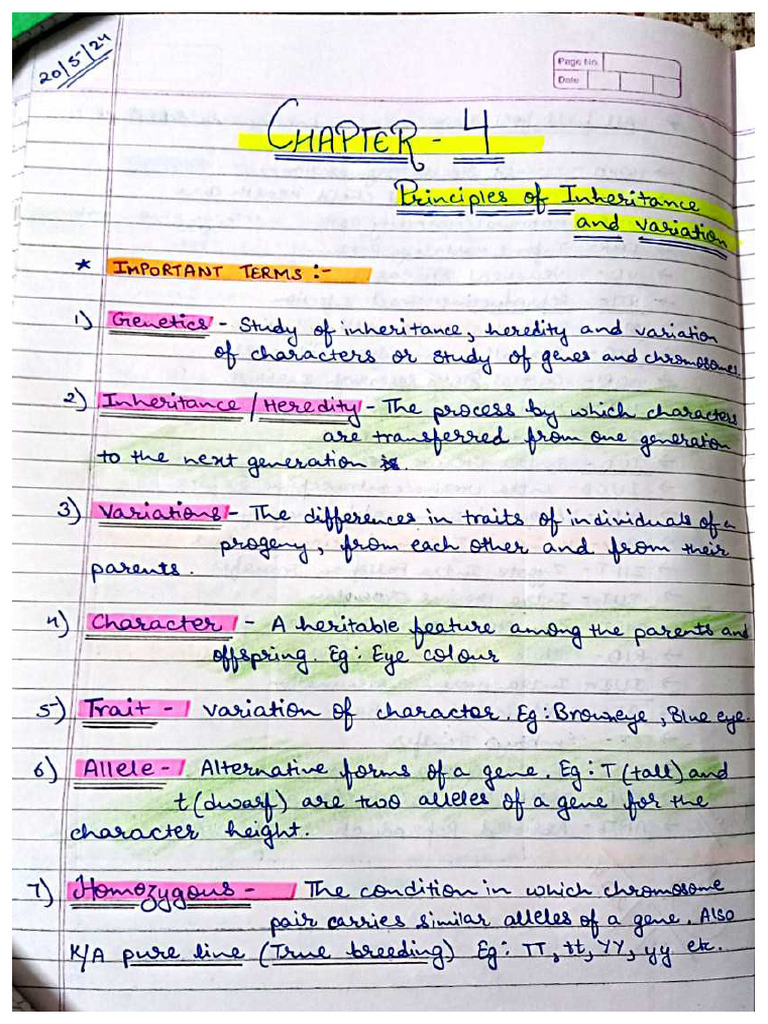 20/5/24
Page No.
Date
CHAPTER - 4
Principles of Inheritance
and variation
* IMPORTANT TERMS :-
1) Genetics - Study of inheritance, heredity and variation
of characters or study of genes and chromosomes.
2) Inheritance / Heredity - The process by which characters
are transferred from one generation
to the next generation.
3) Variations - The differences in traits of individuals of a
progeny, from each other and from their
parents.
4) Character - A heritable feature among the parents and
offspring. Eg: Eye colour
5) Trait - variation of character. Eg: Brown eye, Blue eye.
6) Allele - Alternative forms of a gene. Eg: T (tall) and
t (dwarf) are two alleles of a gene for the
character height.
7) Homozygous - The condition in which chromosome
pair carries similar alleles of a gene. Also
K/A pure line (True breeding) Eg: TT, tt, YY, yy etc.